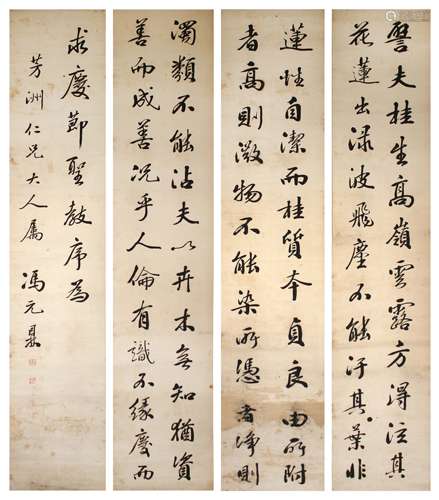 譬夫桂生高嶺雲露方得泫其
花蓮出淥波飛塵不能汙其葉非
蓮性自潔而桂質本貞良由所附
者高則微物不能染所憑者淨則
濁類不能沾夫以卉木無知猶資
善而成善況乎人倫有識不緣慶而
求慶節聖教序為
芳洲仁兄大人屬 馮元